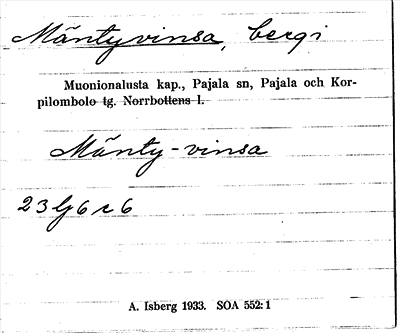 Mäntyvinsa, bergi
Muonionalusta kap., Pajala sn, Pajala och Kor-
pilombolo tg. Norrbottens l.
Mänty-vinsa
23 Lj 6 c 6
A. Isberg 1933. SOA 552: 1